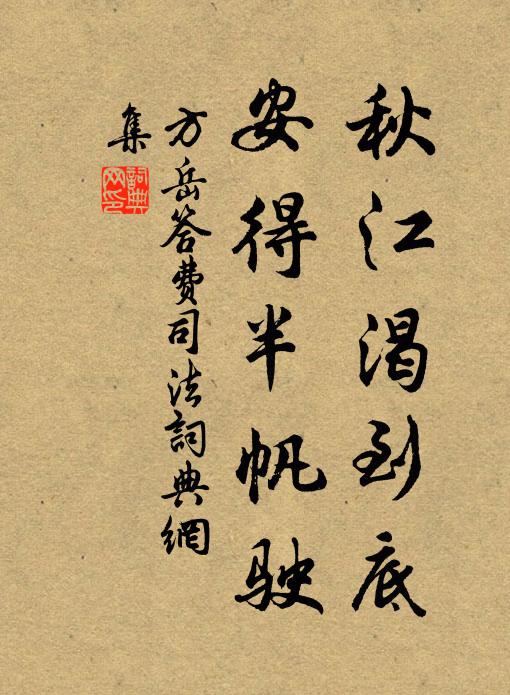 秋江渴到底
安得半帆駛
方岳答費司法詞典網
集
詞典網印